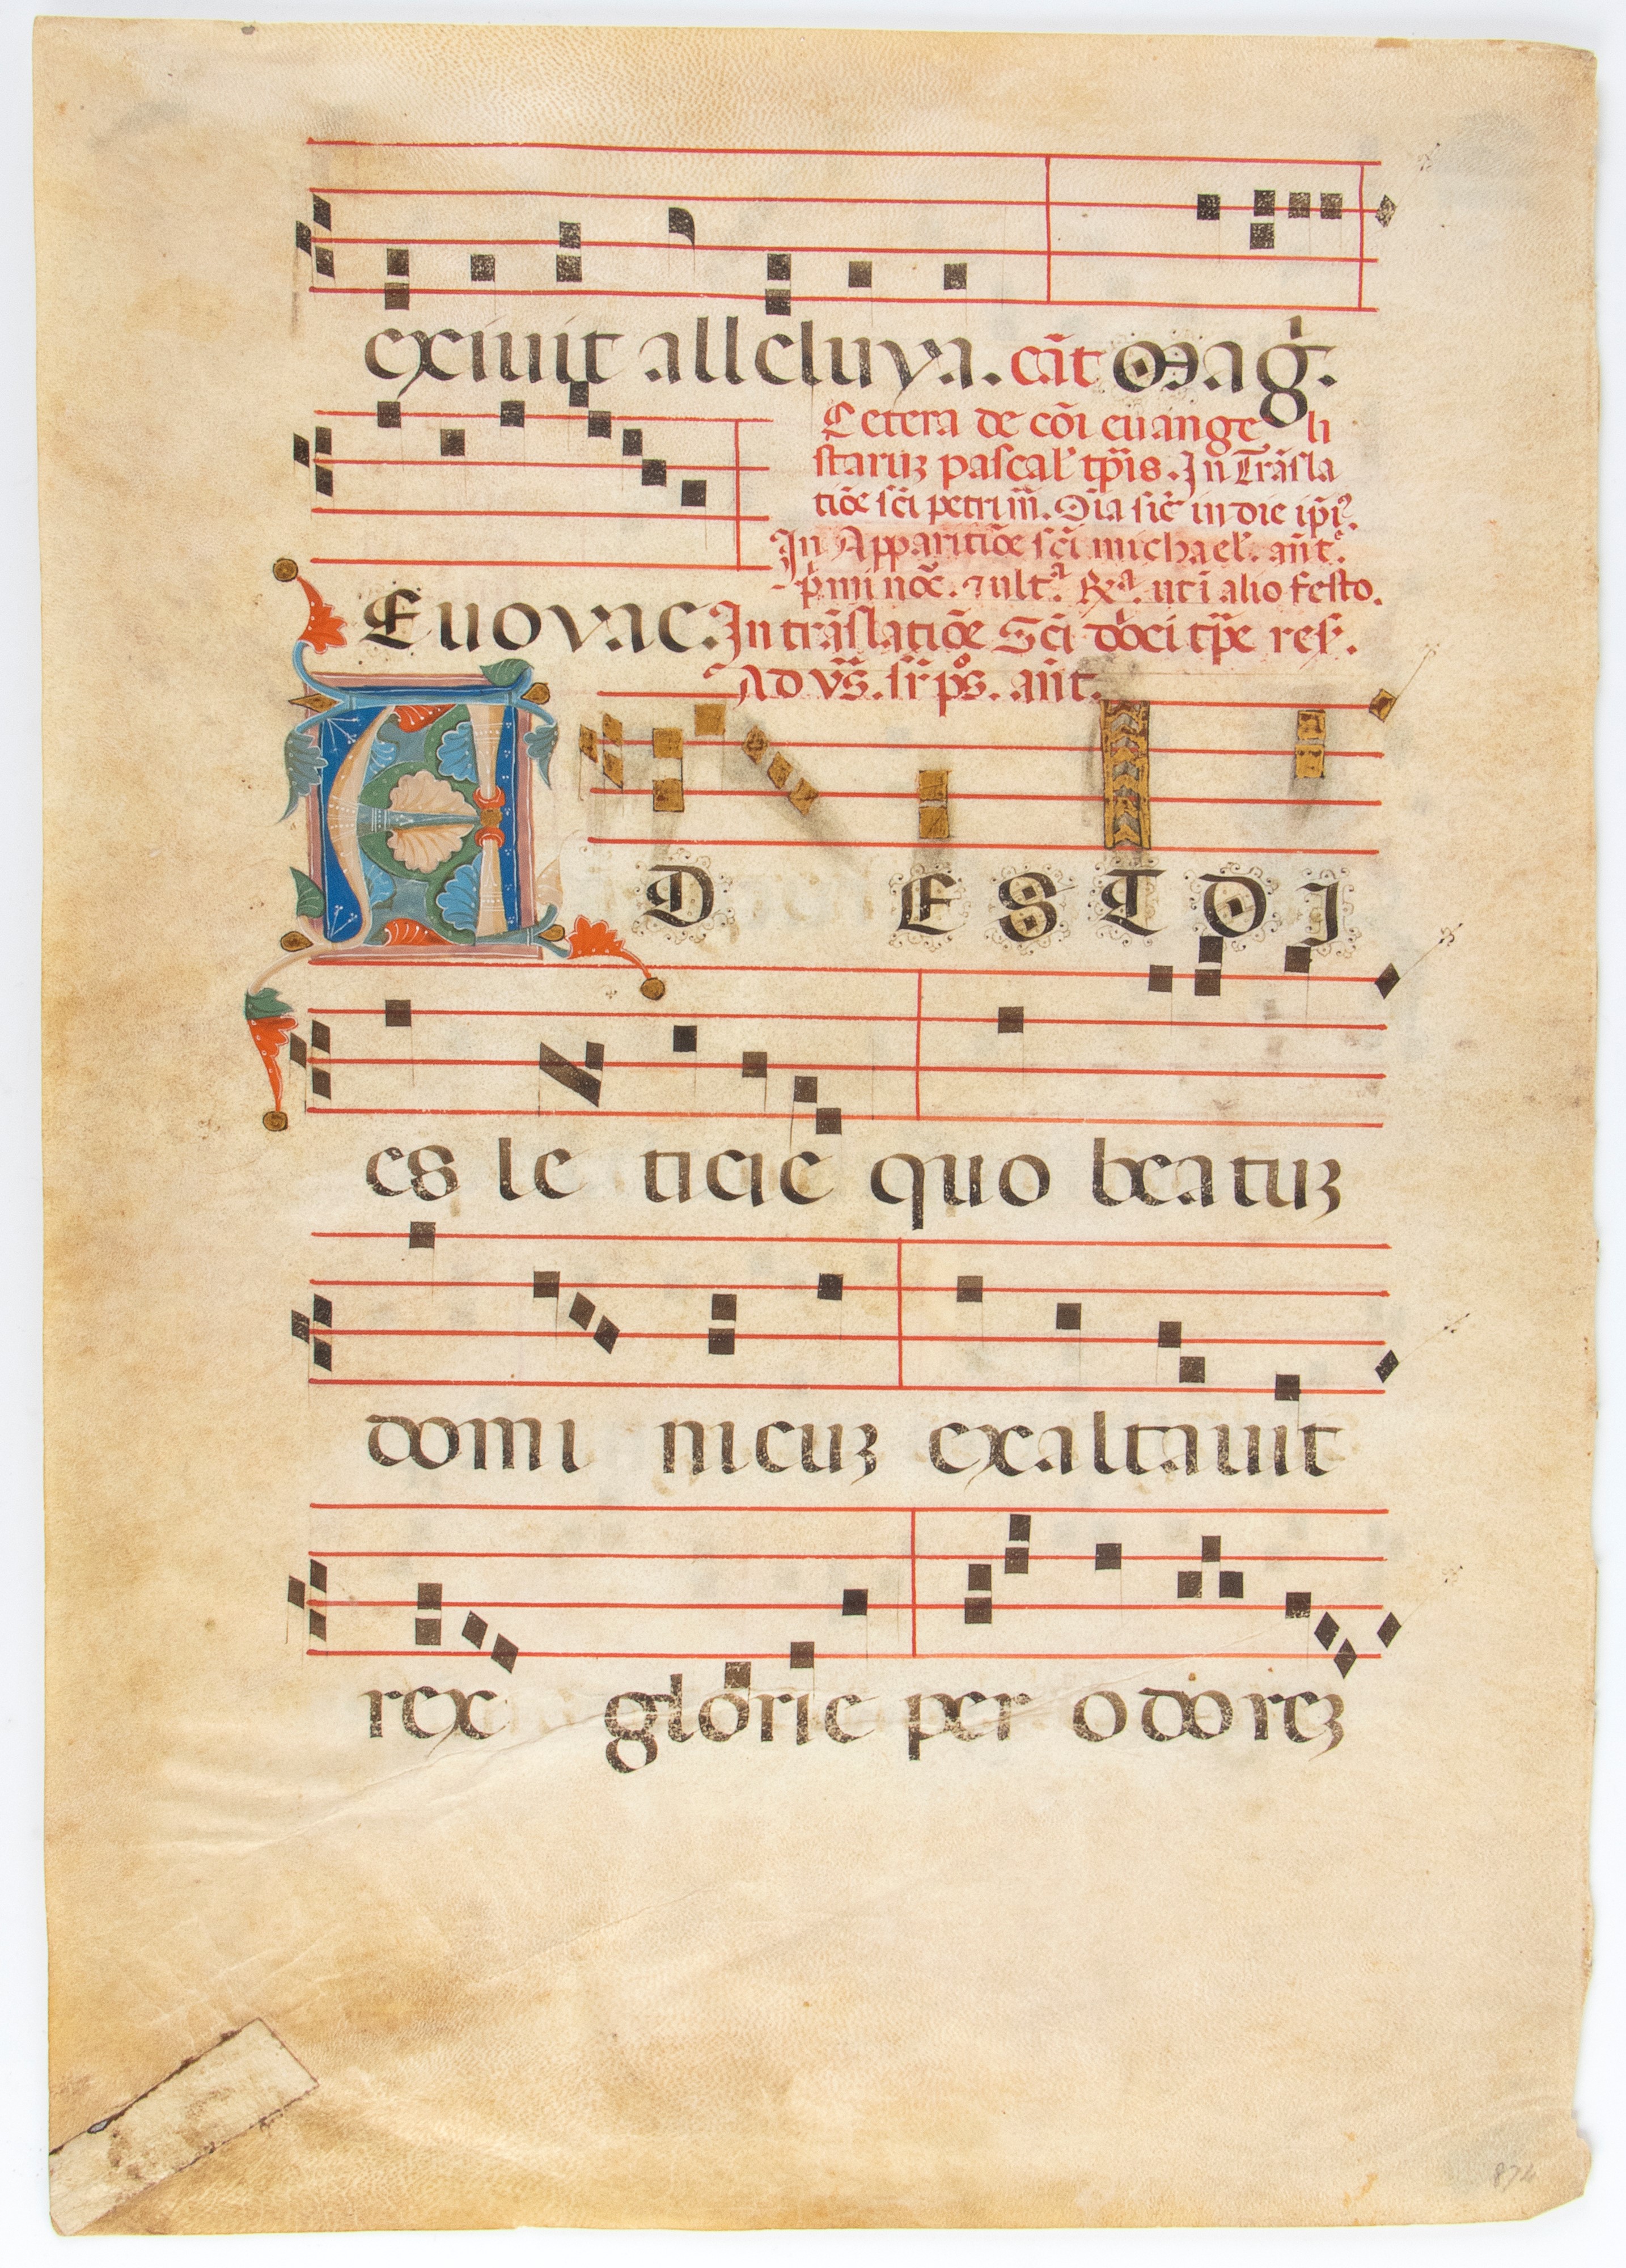 exiuit alleluya. cāt Maḡ.
Cetera de cōi euange li
staruȝ pascal' tp̄is. In Trāsla
tiōe sc̄i petri m̄. Oīa sic̄ in die ip̄i᾽.
In Apparitiōe sc̄i michael'. ant̄.
p̄mi noc̄. ⁊ ultᵃ. R̄ᵃ. ut ī alio festo.
Euovae. In trāslatiōe Sc̄i dōci tp̄e res̄.
Ad vs̄. sr̄ pōs. ant̄.
A D E S T D I
es le ticie quo beatuȝ
domi nicuȝ exaltauit
rex glorie per odoreȝ
874